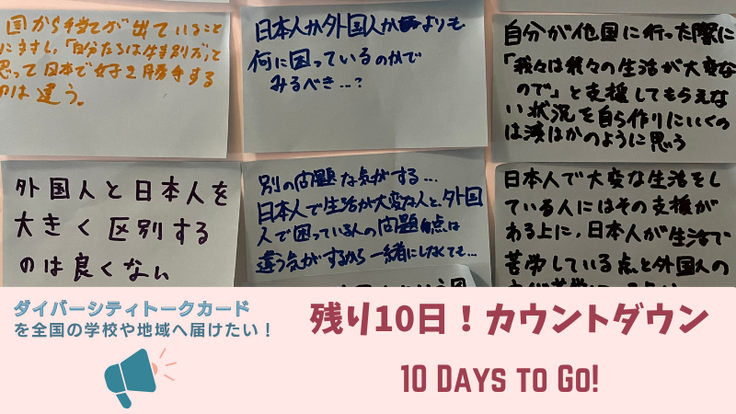 国から手当てが出ていること
にますし、「自分たちは特別だ」と
思って日本で好き勝手する
のは違う。
日本人か外国人かよりも
何に困っているのかで
みるべき…?
自分が他国に行った際に
「我々は我々の生活が大変な
ので」と支援してもらえな
い状況を自ら作りにいくの
は浅はかのように思う
外国人と日本人を
大きく区別する
のは良くない
別の問題な気がする…
日本人で生活が大変な人と、外国
人で困っている人の問題点は
違う気がするから一緒にしなくても…
日本人で大変な生活をし
ている人にはその支援が
ある上に、日本人が生活で
苦労している点と外国人の
ダイバーシティトークカード
を全国の学校や地域へ届けたい！
残り10日！カウントダウン
10 Days to Go!